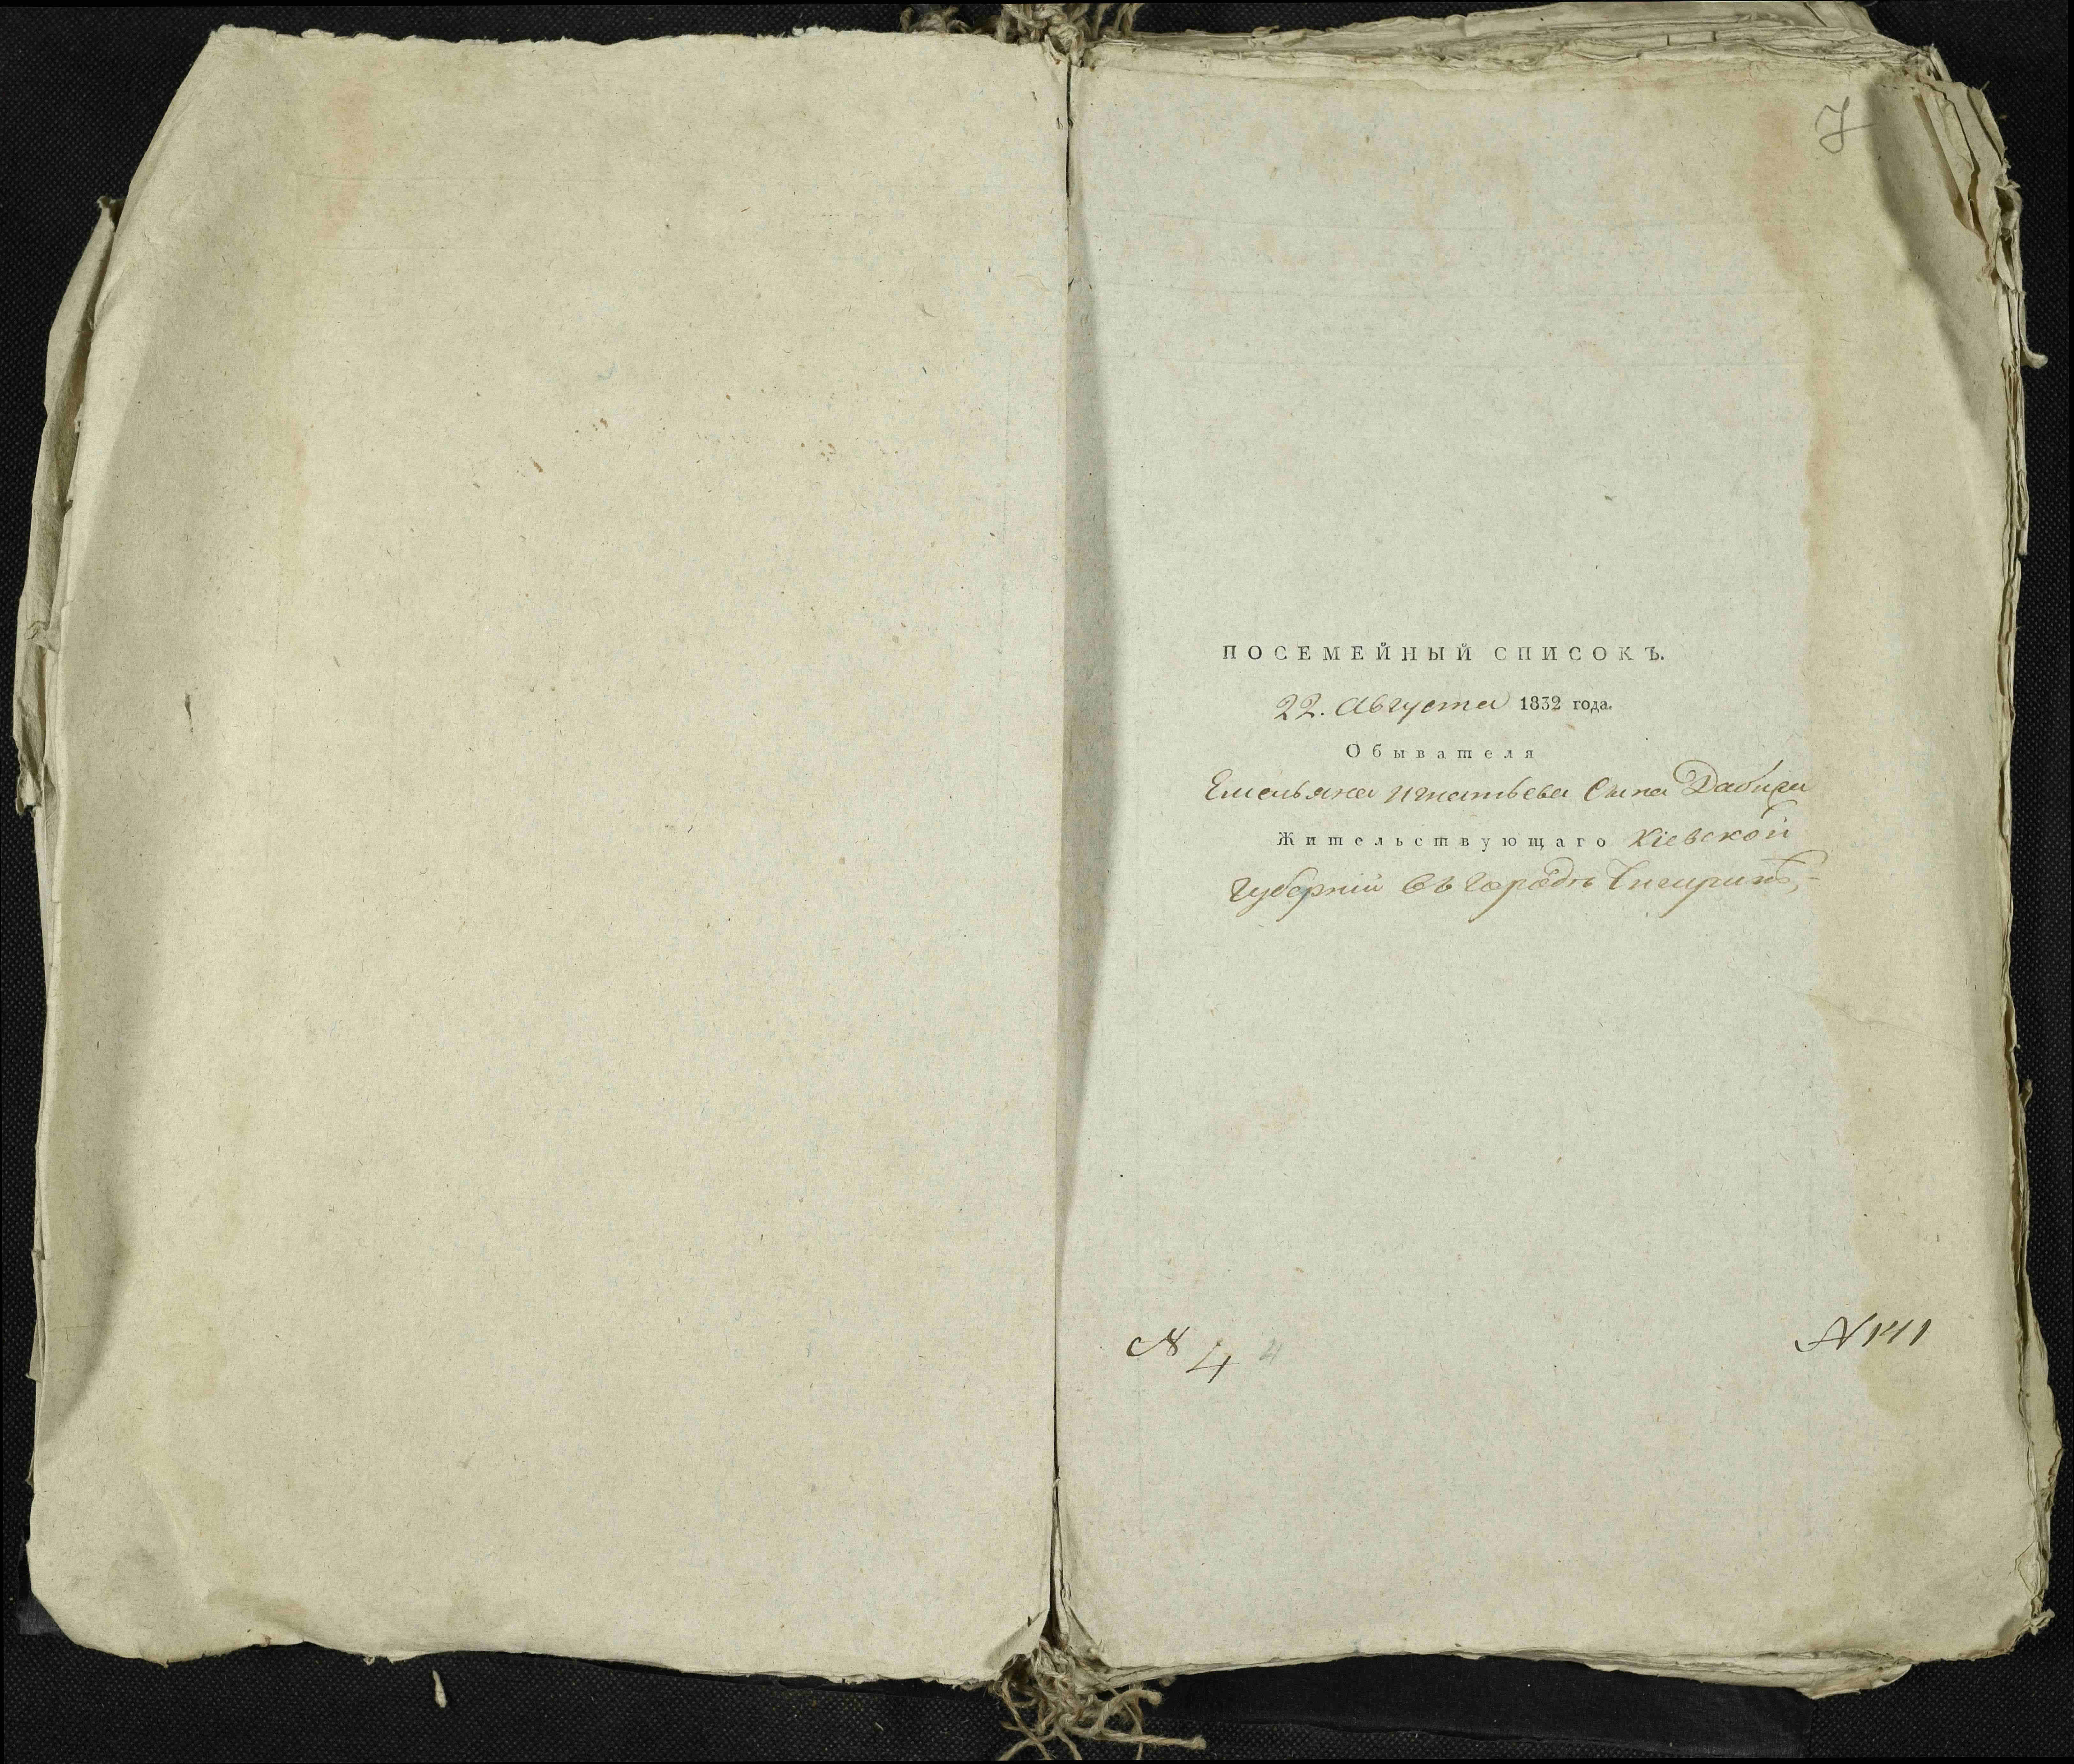 7
ПОСЕМЕЙНЫЙ СПИСОКЪ.
22. Августа 1832 года.
Обывателя
Емельяна Игнатьева Сына
Жительствующаго Кіевской
Губерніи въ городѣ Чигиринѣ,
№ 4 4